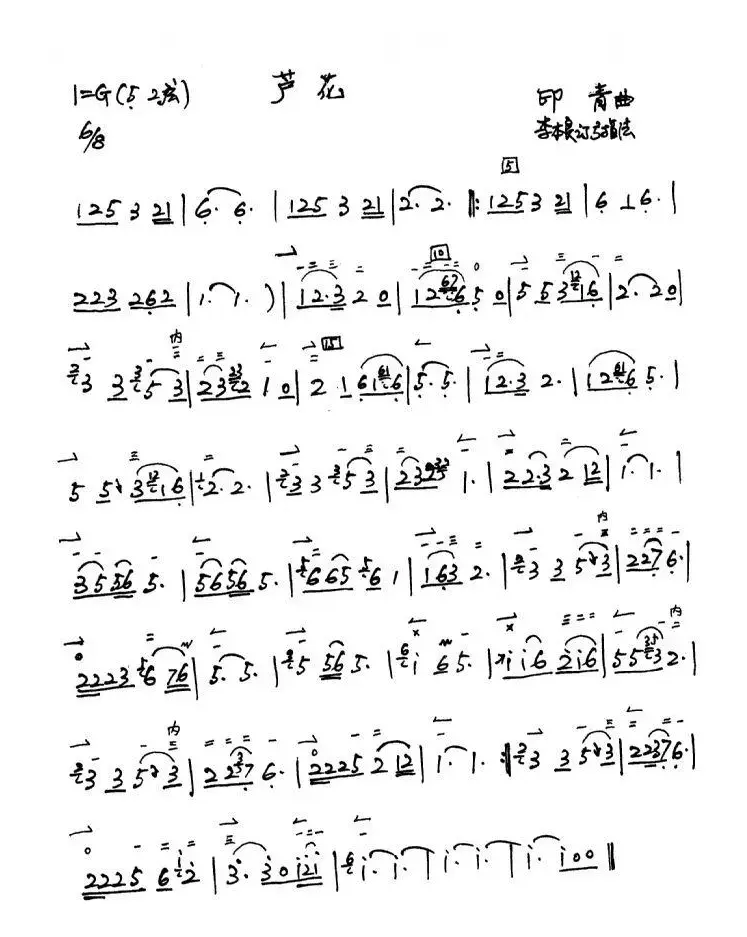 1=G(5 2弦) 芦花 印青曲
6/8 李本良订弓指法
5
125 3 21 | 6· 6· | 125 3 21 | 2· 2· ‖: 125 3 21 | 6 1 6· |
10
223 262 | 1· 1· ) | 12·3 2 0 | 12 6 5 0 | 5 5 3 12 16 | 2· 20 |
内 15
2 3 3 3 5 3 | 23 23 2 1 0 | 2 1 61 61 6 | 5· 5· | 12·3 2· | 12 61 6 5· |
5 5 3 12 16 | 1 2· 2· | 2 3 3 3 5 3 | 23 1· | 22·3 2 12 | 1· 1· |
内
3556 5· | 5656 5· | 5 665 5 6 1 | 163 2· | 2 3 3 5 3 | 227 6· |
内
2223 5 6 76 | 5· 5· | 5 56 5· | 6 i 6 5· | i i 6 2 i 6 | 55 35 3 2· |
内
2 3 3 5 3 | 22 7 6· | 2225 2 12 | 1· 1· :‖ 2 3 3 5 3 | 2237 6· |
2225 6 1 2 | 3· 30 i2i | 6 i· i· | i· i· | i· i00 ‖